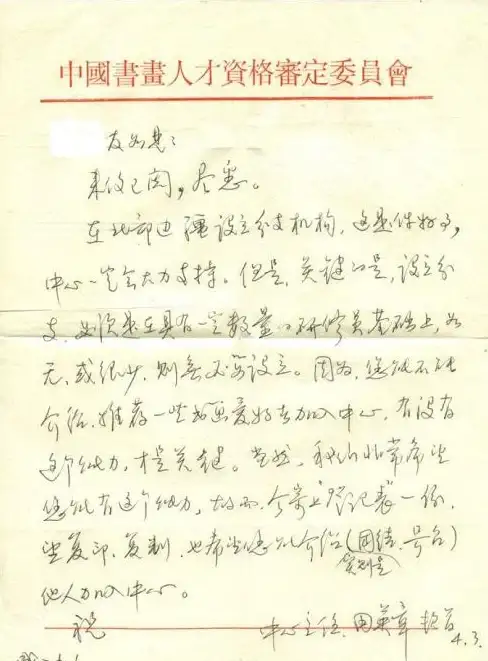 中國書畫人才資格審定委員會
友如其：
来信已阅，尽悉。
在北部边疆设立分支机构，这是件好事，
中心一定会大力支持。但是，关键的是，设立分
支，必须是在具有一定数量的研修员基础上，如
无，或很少，则无必要设立。因为，您能不能
介绍、推荐一些书画爱好者加入中心，有没有
这个能力，才是关键。当然，我们非常希望
您能有这个能力，故而，今寄上“登记表”一份，
望复印、复制，也希望您能介绍（团结、号召）
他人加入中心。
祝
中心主任
4.3.